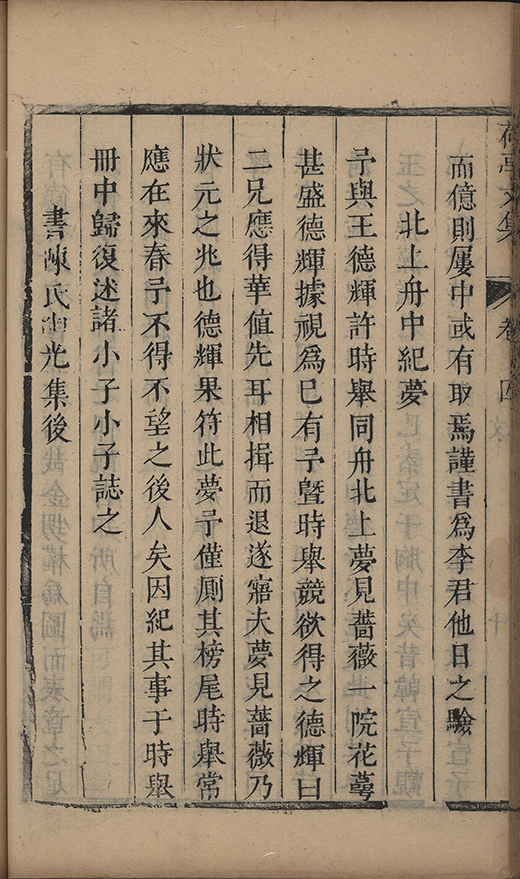 荷亭文集 卷四
而億則屢中或有取焉謹書爲李君他日之驗
北上舟中紀夢
予與王德輝許時舉同舟北上夢見薔薇一院花萼
甚盛德輝據視爲巳有予曁時舉競欲得之德輝曰
二兄應得華值先耳相揖而退遂寤夫夢見薔薇乃
狀元之兆也德輝果符此夢予僅厠其榜尾時舉常
應在來春予不得不望之後人矣因紀其事于時舉
冊中歸復述諸小子小子誌之
書陳氏幽光集後